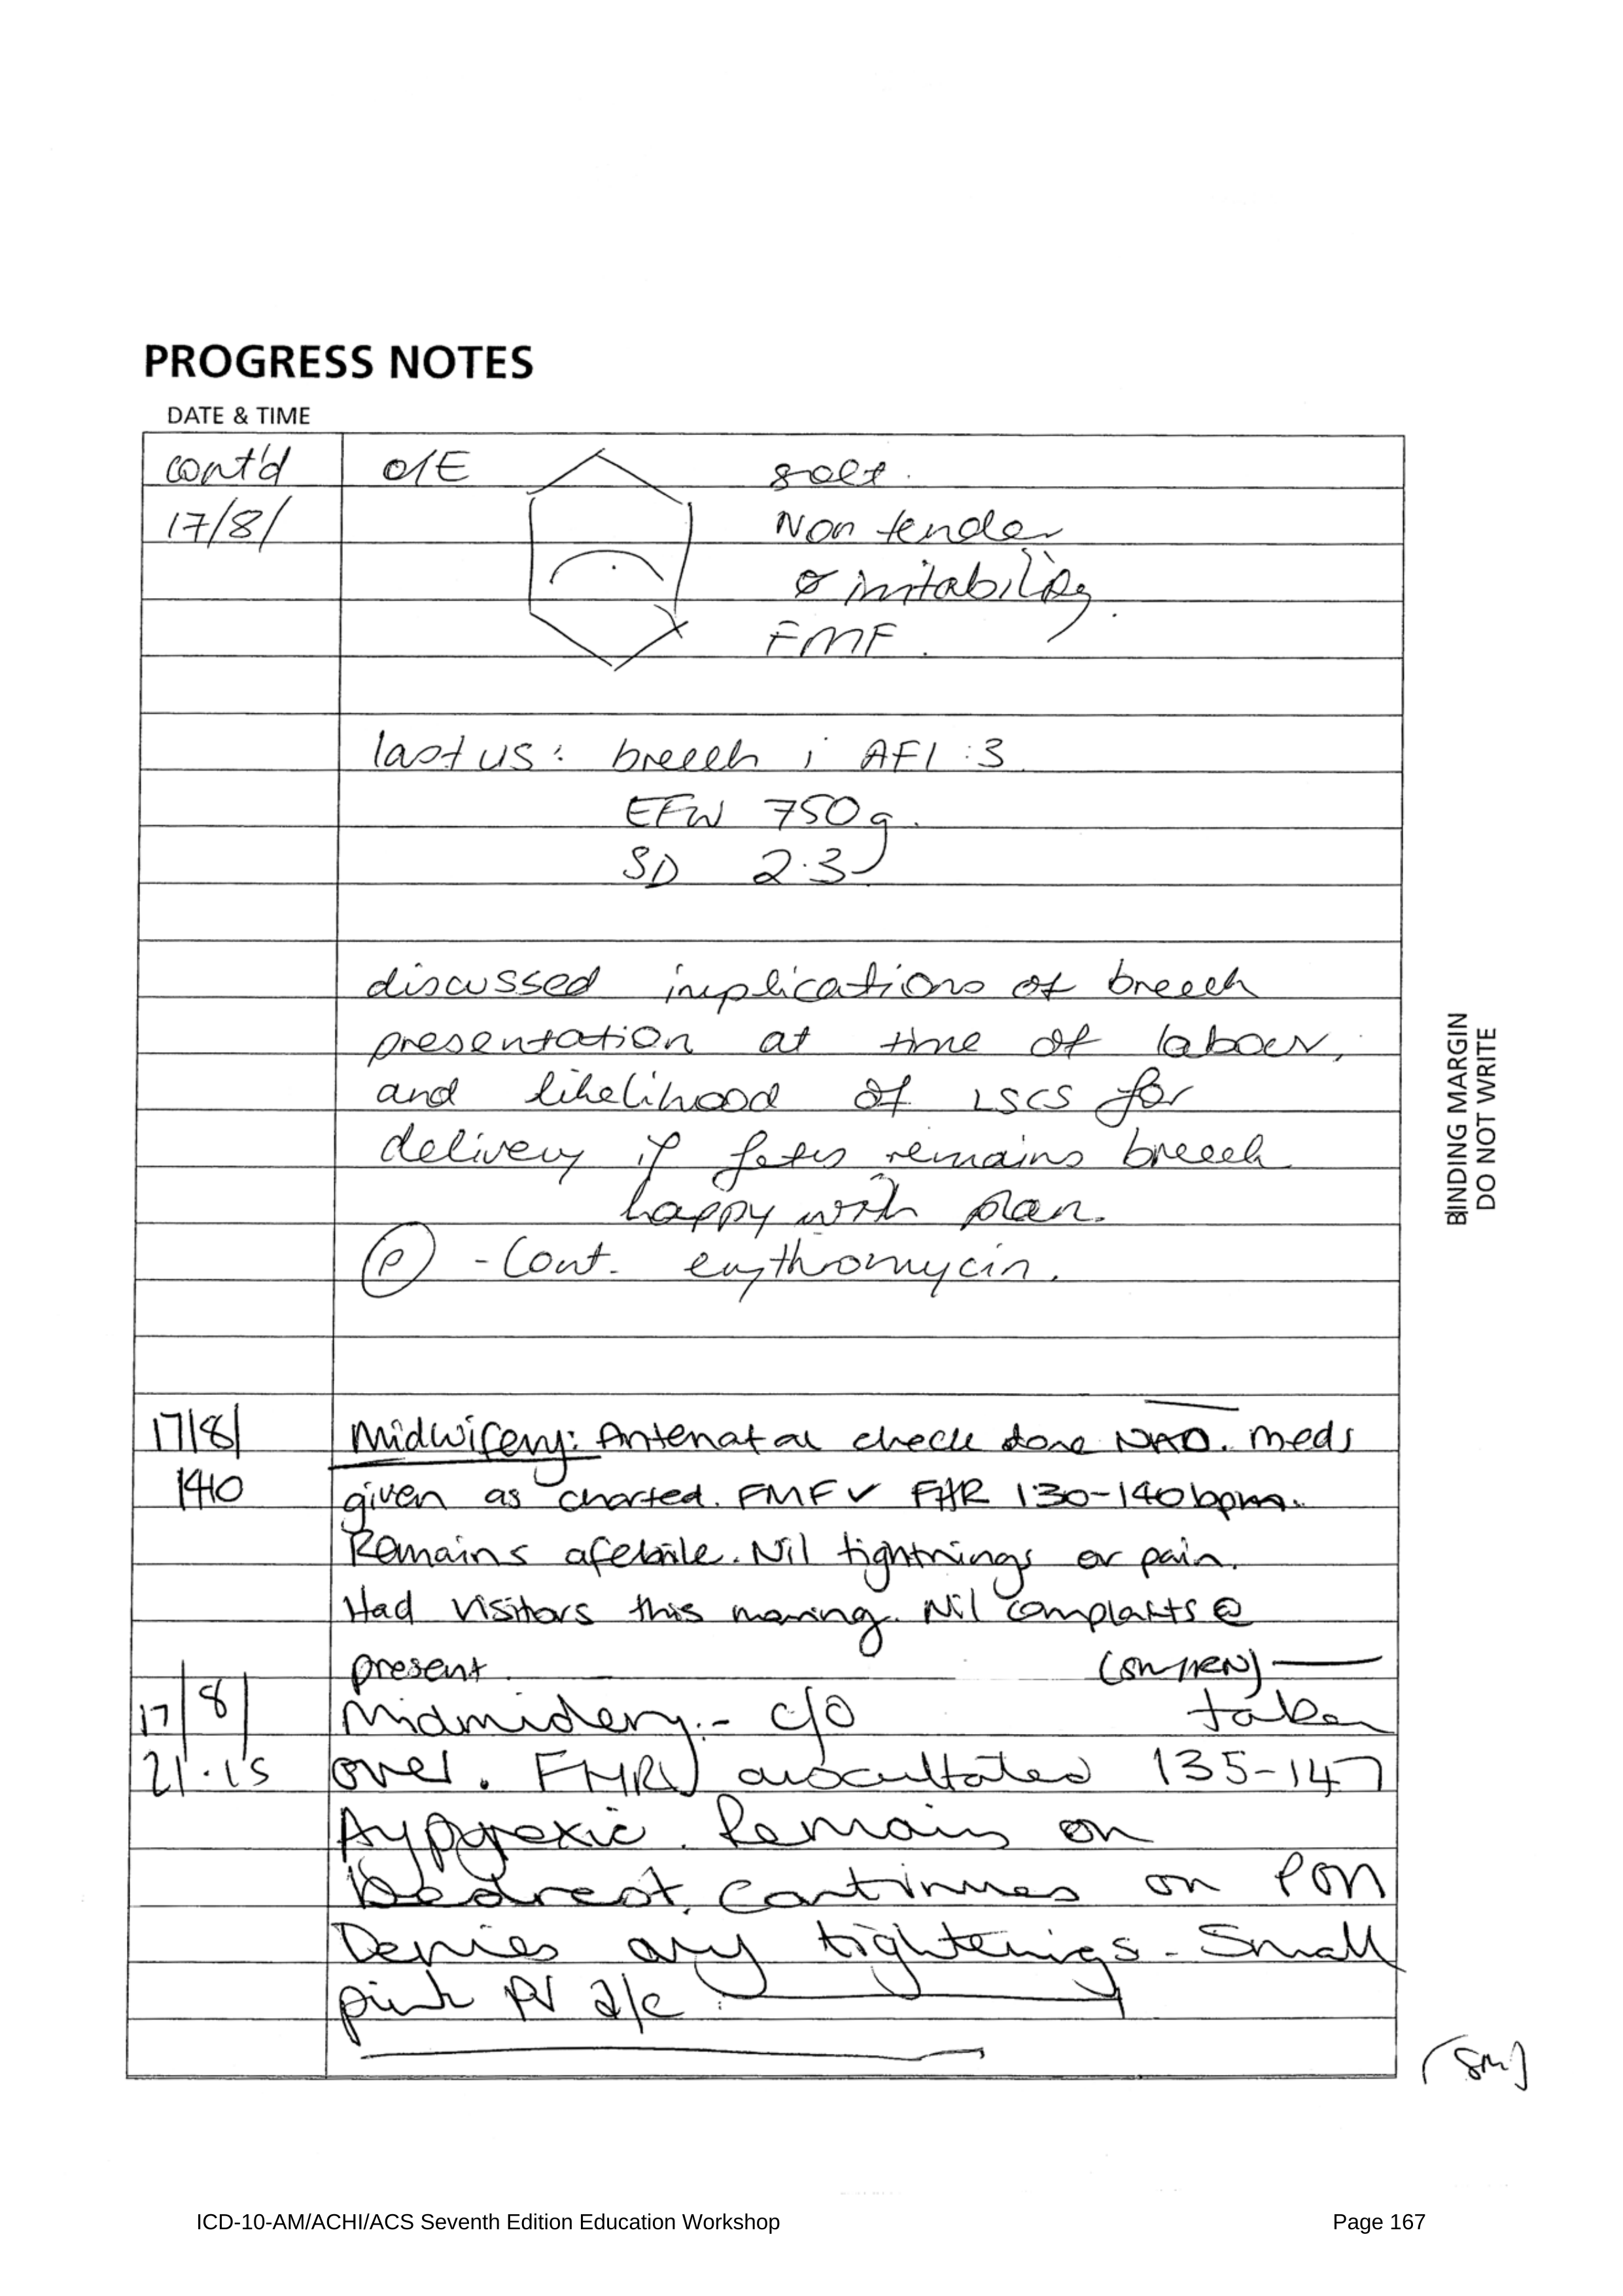 PROGRESS NOTES
DATE & TIME
cont'd O/E soft.
17/8/ Non tender
irritability.
FMF.
last us: breech ; AFI :3
EFW 750g.
SD 2.3
discussed implications of breech
presentation at time of labour,
and likelihood of LSCS for
delivery if fetus remains breech
happy with plan.
(P) - Cont. erythromycin.
17/8/ Midwifery: Antenatal check done NAD. Meds
1410 given as charted. FMF ✓ FHR 130-140bpm.
Remains afebrile. Nil tightnings or pain.
Had visitors this morning. Nil complaints @
present
17/8/ Midwifery - c/o taken
21.15 over. FHR auscultated 135-147
Apyrexic. Remains on
bedrest. Continues on POM
Denies any tightenings - Small
pink PV d/c
(SM)
BINDING MARGIN
DO NOT WRITE
ICD-10-AM/ACHI/ACS Seventh Edition Education Workshop Page 167